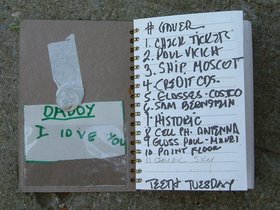 DADDY
I LOVE YOU
1. CHECK TICKETS
2. PAUL
3. SHIP MOSCOT
4 CREDIT CDS.
5. GLOSSES - COSTCO
6. SAM BERNSTEIN
7. HISTORIC
8 CELL PH. ANTENNA
9 GLOSS PAUL - MAUEI
10 PAINT FLOOR
11
TEETH TUESDAY